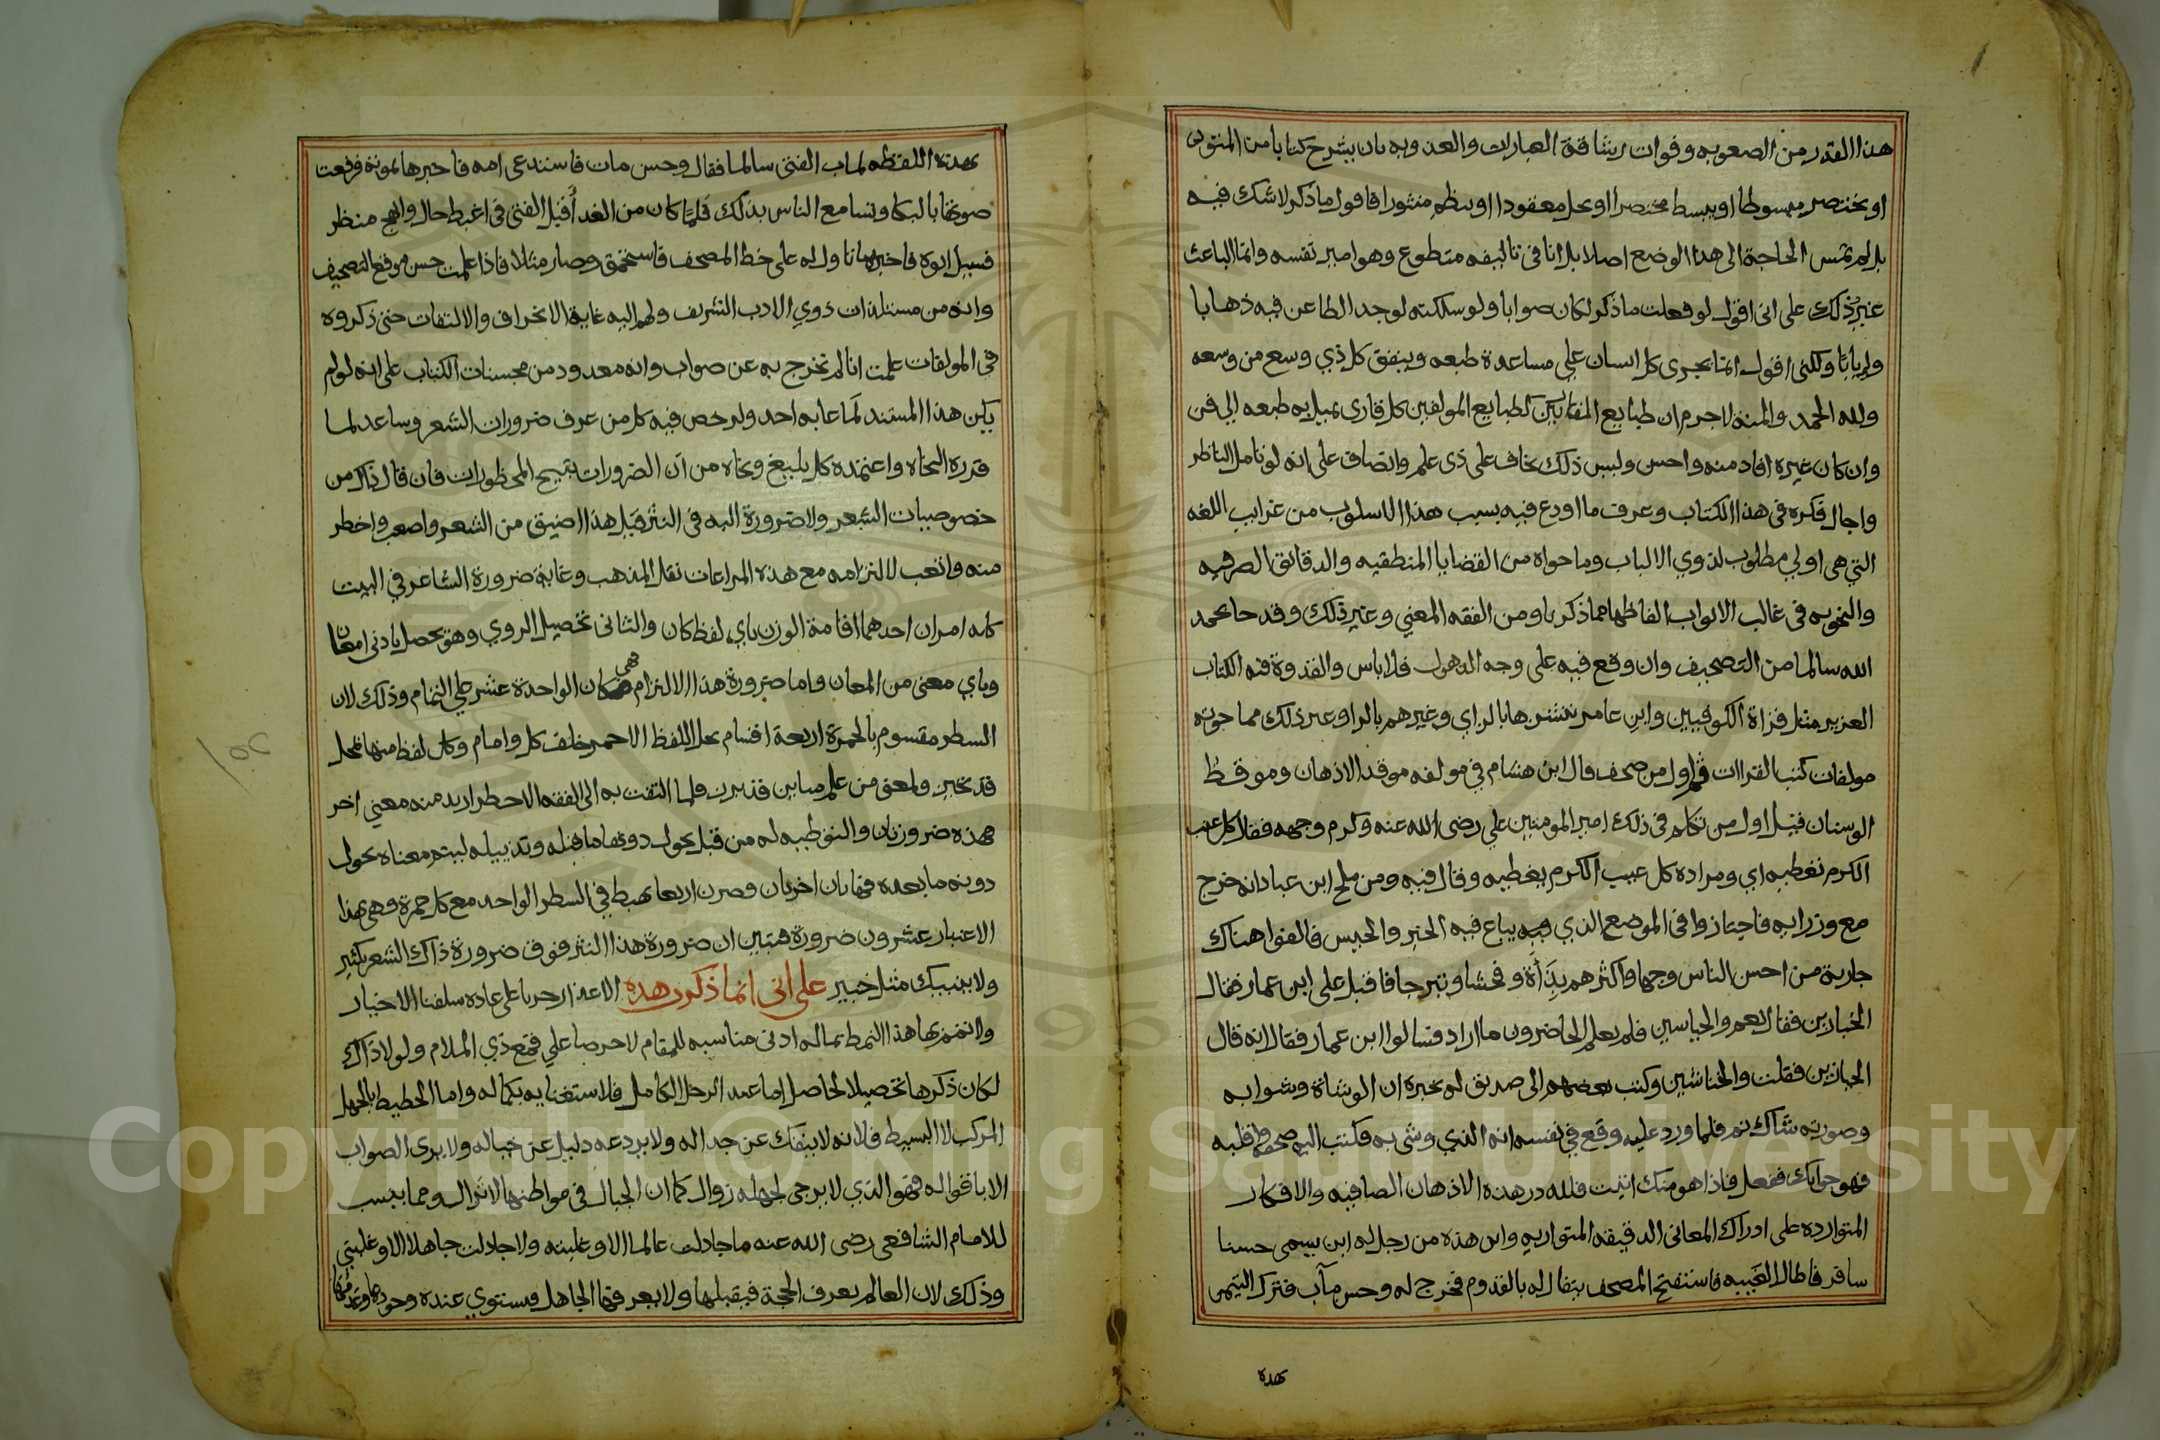 هذا القدر من الصعوبه وفوات رشاقة العبارات والعذوبه بان يشرح كتابا من المتون
او يختصر مبسوطا او يبسط مختصرا او يحل معقودا او ينظم منثورا فاقول ماذكر لاشك فيه
بل لم تمس الحاجة الى هذا الوضع اصلا بل انا في تاليفه متطوع وهو امير نفسه وانما الباعث
غير ذلك على انى اقول لو فعلت ماذكر لكان صوابا ولو سلكته لوجد الطاعن فيه ذهابا
وايابا ولكنى اقول انما يجرى كل انسان على مساعدة طبعه وينفق كل ذي وسع من وسعه
ولله الحمد والمنه لاجرم ان طبايع لطبايع المولفين كل قارى يميل به طبعه الى فن
وان كان غيره افاد منه واحسن وليس ذلك بخاف على ذى علم وانصاف على انه لو تامل الناظر
واجال فكره في هذا الكتاب وعرف ما اودع فيه بسبب هذا الاسلوب من غرايب اللغه
التي هى اولى مطلوب لذوي الالباب وما حواه من القضايا المنطقيه والدقائق الصرفيه
والنحويه في غالب الابواب الفاظها مما ذكر باومن الفقه المغني وغير ذلك وقد جا بحمد
الله سالما من التصحيف وان وقع فيه على وجه الذهول فلاباس والقدوة فيه الكتاب
العزيز مثل قراة الكوفيين وابن عامر ننشزها بالزاي وغيرهم بالرا وغير ذلك مما حوته
مولفات كتب القراات اول من صحف قال ابن هشام في مولفه موقد الاذهان وموقظ
الوسنان قيل اول من تكلم في ذلك امير المومنين علي رضى الله عنه وكرم وجهه فقال كل عنب
الكرم تغطيه اي ومراده كل عيب الكرم يغطيه وقال فيه ومن ملح ابن عباد انه خرج
مع وزرايه فاجتازوا في الموضع الذي يباع فيه الجير والجبس فالفوا هناك
جارية من احسن الناس وجها واكثرهم بذأة وفحشا وتبرجا فاقبل على ابن عمار فقال
الجيارين فقال نعم والجباسين فلم يعلم الحاضرون ما اراد فسالوا ابن عمار فقال انه قال
الجبازين فقلت والخناشين وكتب بعضهم الى صديق له يخبره ان الوشاة وشوا به
وصورته شاك نم فلما ورد عليه وقع في نفسه انه الذي وشى به فكتب اليه صحفه واقلبه
فهو جوابك ففعل فاذا هو منك اتيت فلله در هذه الاذهان الصافيه والافكار
المتوارده على ادراك المعاني الدقيقه المتواريه واين هذه من رجل له ابن يسمى حسنا
سافر فاطال الغيبه فاستفتح المصحف يتفال له بالقدوم فخرج له وحسن مآب فترك
بهذه
بهذه اللفظه لماب الفتى سالما فقال وحسن مات فاستدعى امه فاخبرها بموته فرفعت
صوتها بالبكا وتسامع الناس بذلك فلما كان من الغد أقبل الفتى في اغبط حال وابهج منظر
فسيل ابوه فاخبرهم بما تاول له على خط المصحف فاستحمق وصار مثلا فاذا علمت حسن موقع التصحيف
وانه من مستلذات ذوي الادب الشريف ولهم اليه غاية الانحراف والالتفات حتى ذكروه
في المولفات علمت انا لم نخرج به عن صواب وانه معدود من محسنات الكتاب على انه لو لم
يكن هذا المستند لما عابه احد ولرخص فيه كل من عرف ضرورات الشعر وساعد لما
قرره النحاه واعتمده كل بليغ ونحاه من ان الضرورات تبيح المحظورات فان قال ذاك من
خصوصيات الشعر ولا ضرورة اليه في النثر قيل هذا اضيق من الشعر واصعب واخطر
منه واتعب لالتزامه مع هذه المراعات نقل المذهب وغاية ضرورة الشاعر في البيت
كله امران احدهما اقامة الوزن باي لفظ كان والثانى تحصيل الروي وهو يحصل بادنى امعان
وباي معنى من المعان واما ضرورة هذا الالتزام فهى الواحدة عشر على التمام وذلك لان
السطر مقسوم بالحمرة اربعة اقسام بحل اللفظ الاحمر خلف كل وامام وكل لفظ منها فحل
قد تخير ولمعنى من علم مباين قد برت ولما التفت به الى الفقه الاخطر اريد منه معني اخر
فهذه ضرورتان والتوطيه له من قبل يحول دونها ماقبله وتذييله ليتم معناه يحول
دونه مابعده فهاتان اخرتان وصرن اربعا تهبط في السطر الواحد مع كل حمرة وهى بهذا
الاعتبار عشرون ضرورة فتبين ان ضرورة هذا النثر فوق ضرورة ذاك الشعر بكثير
ولا ينبيك مثل خبير على انى انما ذكرت هذه الاعذار جريا على عاده سلفنا الاخيار
ولاتمزبها هذا النمط بماله ادنى مناسبه للمقام لاحرصا علي قمع ذي الملام ولولا ذاك
لكان ذكرها تحصيلا لحاصل اما عند الرجل الكامل فلاستغنايه بكماله واما الخطيط بالجهل
المركب لا البسيط فلانه لاينفك عن جداله ولا يردعه دليل عن خباله ولا يرى الصواب
الا باقواله فهو الذي لا يرجى لجهله زوال كما ان الجبال في مواطنها لاتزال ومما ينسب
للامام الشافعي رضى الله عنه ماجادلت عالما الا وغلبته ولاجادلت جاهلا الا وغلبني
وذلك لان العالم يعرف الحجة فيقبلها ولا يعرفها الجاهل فيستوي عنده وجودها وعدمها